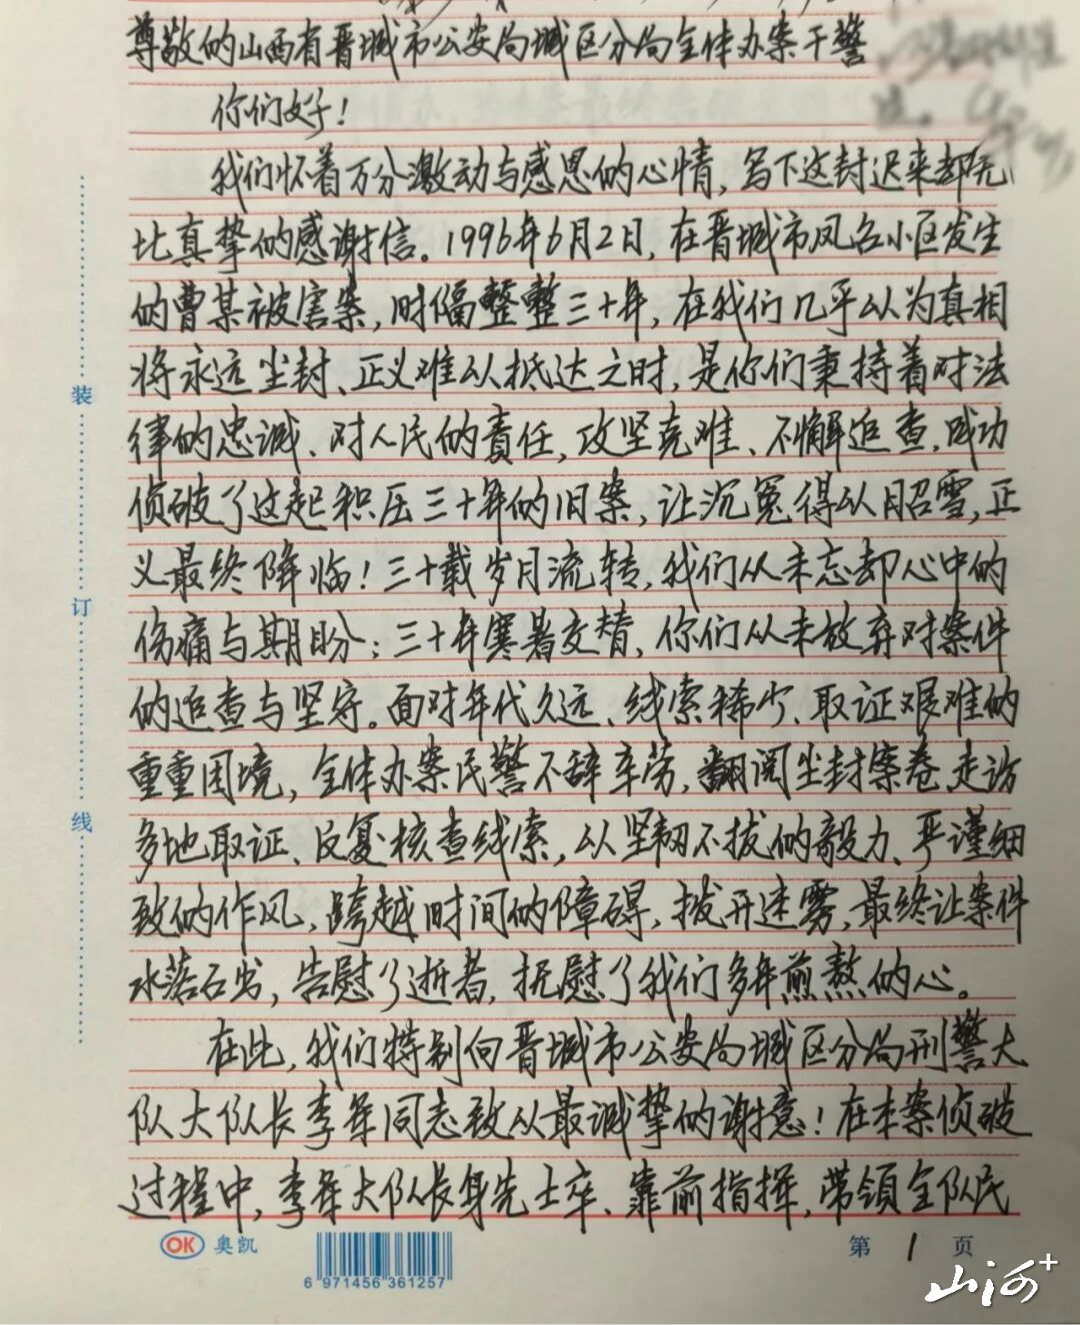 尊敬的山西省晋城市公安局城区分局全体办案干警
你们好！
我们怀着万分激动与感恩的心情，写下这封迟来却无
比真挚的感谢信。1996年6月2日，在晋城市凤台小区发生
的曹某被害案，时隔整整三十年，在我们几乎以为真相
将永远尘封、正义难以抵达之时，是你们秉持着对法
律的忠诚、对人民的责任，攻坚克难、不懈追查，成功
侦破了这起积压三十年的旧案，让沉冤得以昭雪，正
义最终降临！三十载岁月流转，我们从未忘却心中的
伤痛与期盼；三十年寒暑交替，你们从未放弃对案件
的追查与坚守。面对年代久远、线索稀少、取证艰难的
重重困境，全体办案民警不辞辛劳，翻阅尘封案卷、走访
多地取证、反复核查线索，以坚韧不拔的毅力、严谨细
致的作风，跨越时间的障碍，拨开迷雾，最终让案件
水落石出，告慰了逝者，抚慰了我们多年煎熬的心。
在此，我们特别向晋城市公安局城区分局刑警大
队大队长李军同志致以最诚挚的谢意！在本案侦破
过程中，李军大队长身先士卒、靠前指挥，带领全队民
装
订
线
OK 奥凯
6 971456 361257
第 1 页
山河+